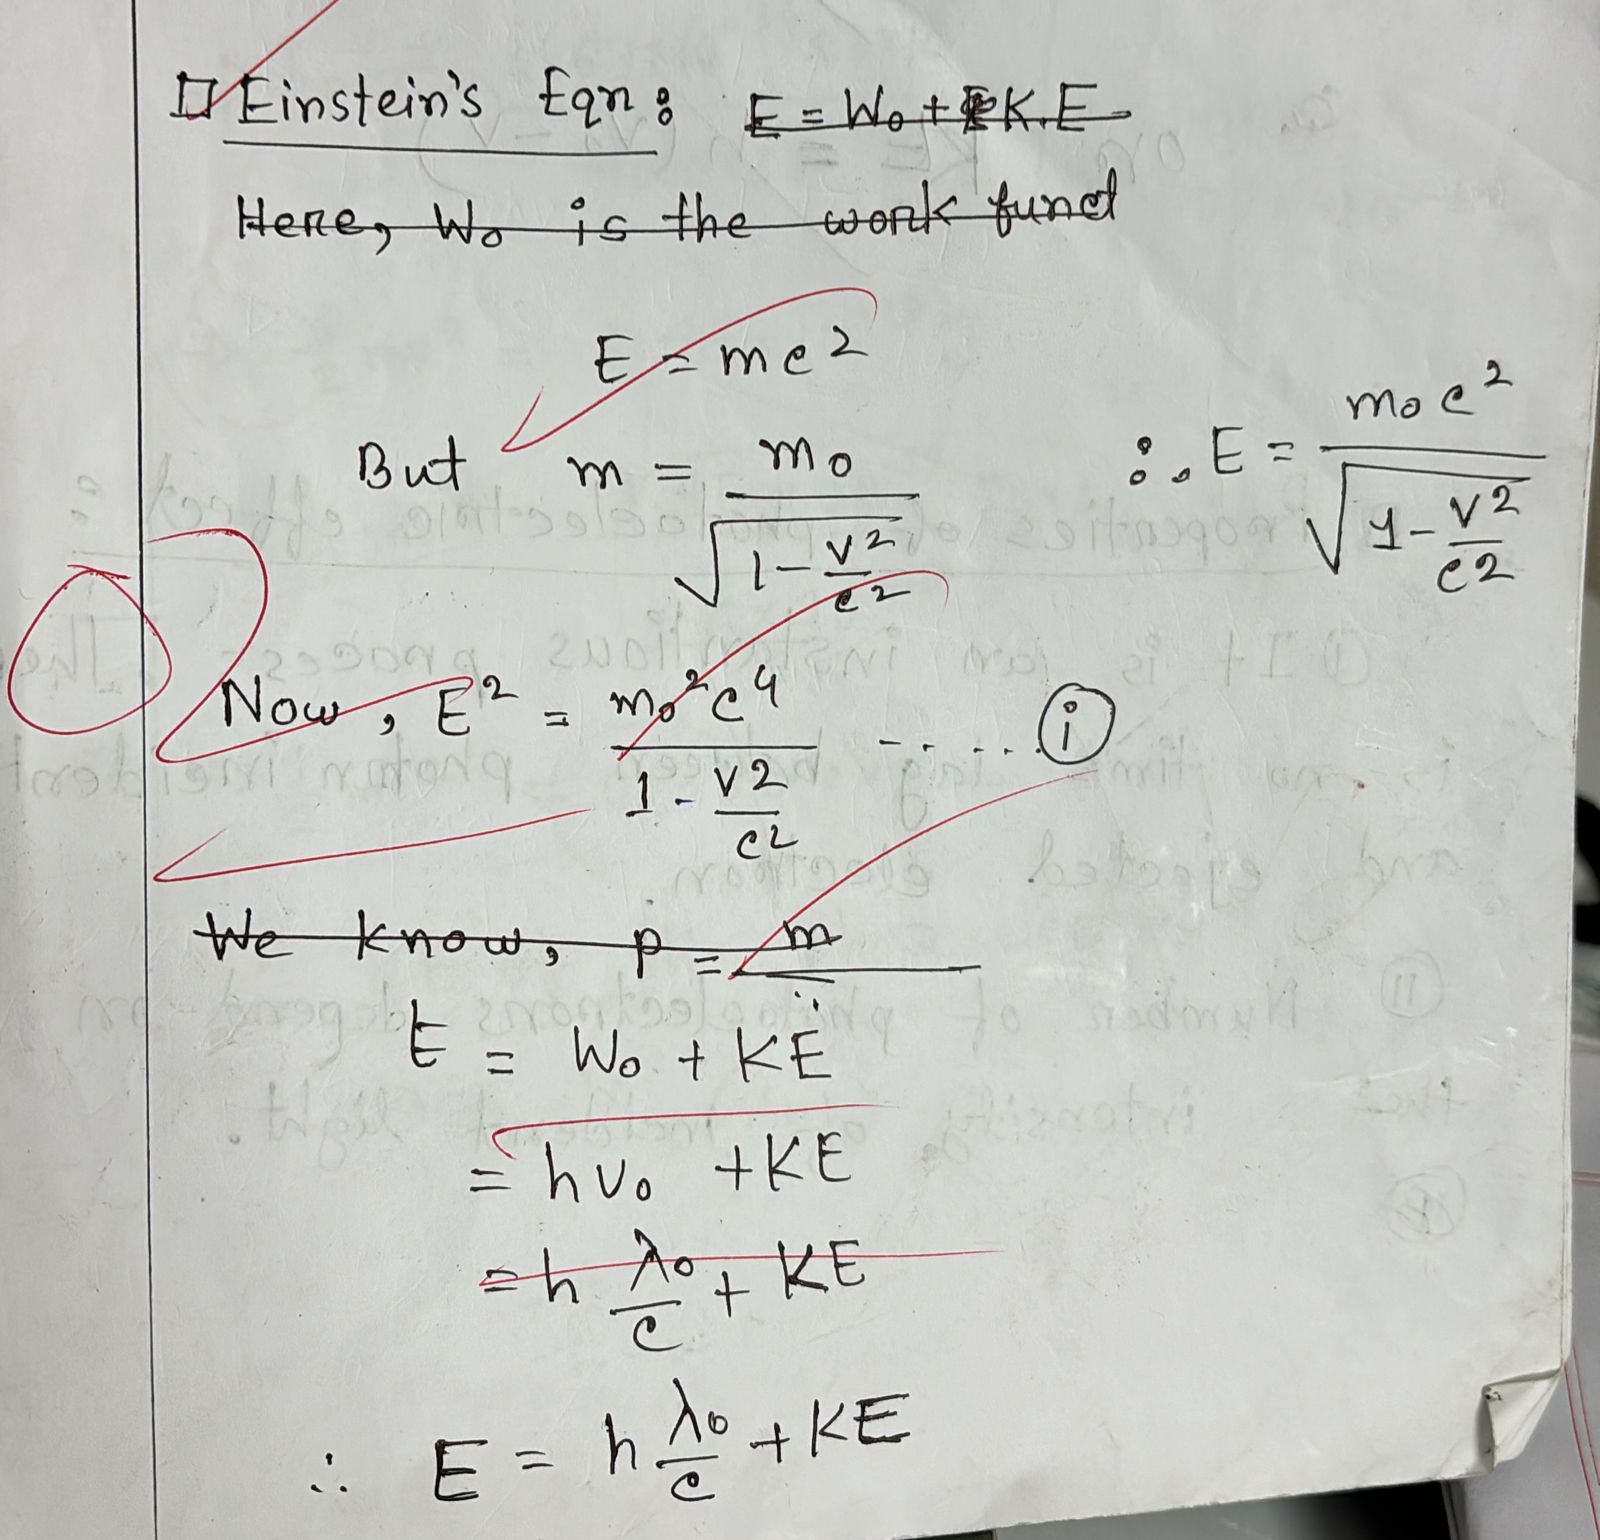 Einstein's Eqn: E = W₀ + K.E
Here, W₀ is the work funct
E = mc²
But m = m₀ / √(1 - v²/c²) ∴ E = m₀c² / √(1 - v²/c²)
Now, E² = m₀²c⁴ / (1 - v²/c²) ...... (i)
We know, p = m
E = W₀ + KE
= hν₀ + KE
= h λ₀/c + KE
∴ E = h λ₀/c + KE